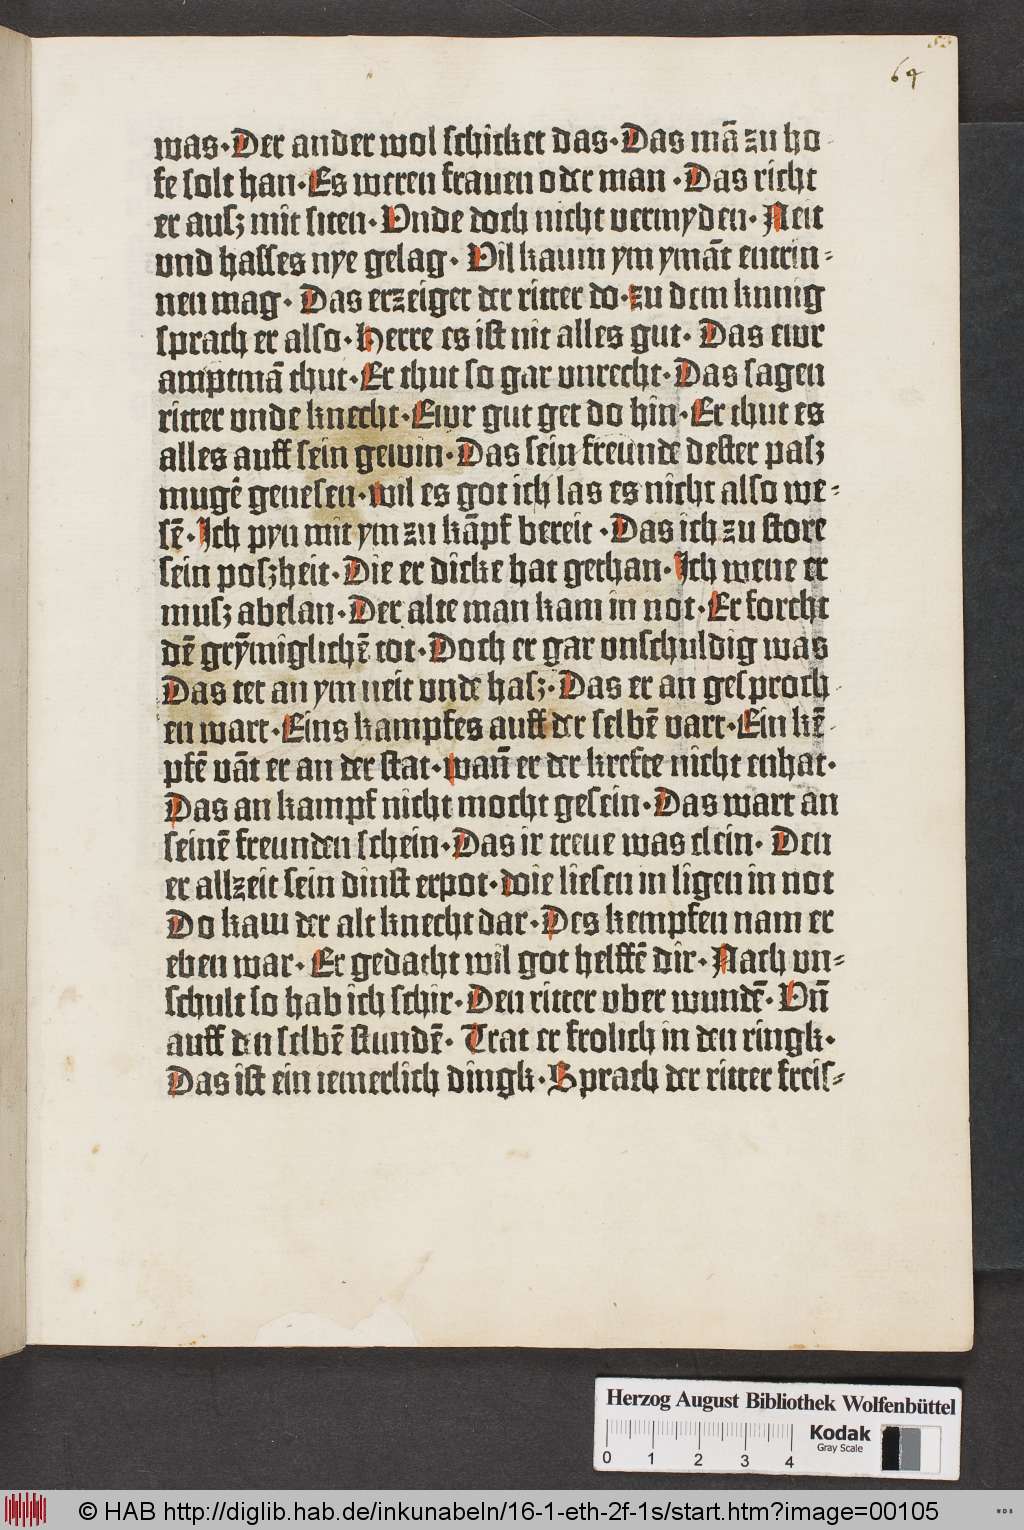 53
64
was·Der ander wol schicket das·Das mā zu ho
fe solt han·Es weren frauen oder man ·Das richt
er ausz mit siten·Vnde doch nicht vermyden·Neit
vnd hasses nye gelag· Vil kaum ym ymāt entrin=
nen mag· Das erzeiget der ritter do·zu dem kunig
sprach er also·Herre es ist nit alles gut· Das ewr
amptmā thut·Er thut so gar vnrecht·Das sagen
ritter vnde knecht·Ewr gut get do hin·Er thut es
alles auff sein gewin·Das sein freunde dester pasz
mugē genesen·wil es got ich las es nicht also we=
sē·Ich pyn mit ym zu kāpf bereit ·Das ich zu store
sein poszheit·Die er dicke hat gethan·Ich wene er
musz abelan·Der alte man kam in not·Er forcht
dē grȳmiglichē tot·Doch er gar vnschuldig was
Das tet an ym neit vnde hasz·Das er an gesproch
en wart·Eins kampfes auff der selbē vart·Ein kē
pfē vāt er an der stat·wan̄ er der krefte nicht enhat·
Das an kampf nicht mocht gesein·Das wart an
seinē freunden schein·Das ir treue was clein· Den
er allzeit sein dinst erpot·die liesen in ligen in not
Do kam der alt knecht dar·Des kempfen nam er
eben war·Er gedacht wil got helffē dir·Nach vn=
schult so hab ich schir·Den ritter vber wundē·Vn̄
auff den selbē stundē· Trat er frolich in den ringk·
Das ist ein iemerlich dingk·Sprach der ritter freis=
Herzog August Bibliothek Wolfenbüttel
Kodak
Gray Scale
0 1 2 3 4
© HAB http://diglib.hab.de/inkunabeln/16-1-eth-2f-1s/start.htm?image=00105